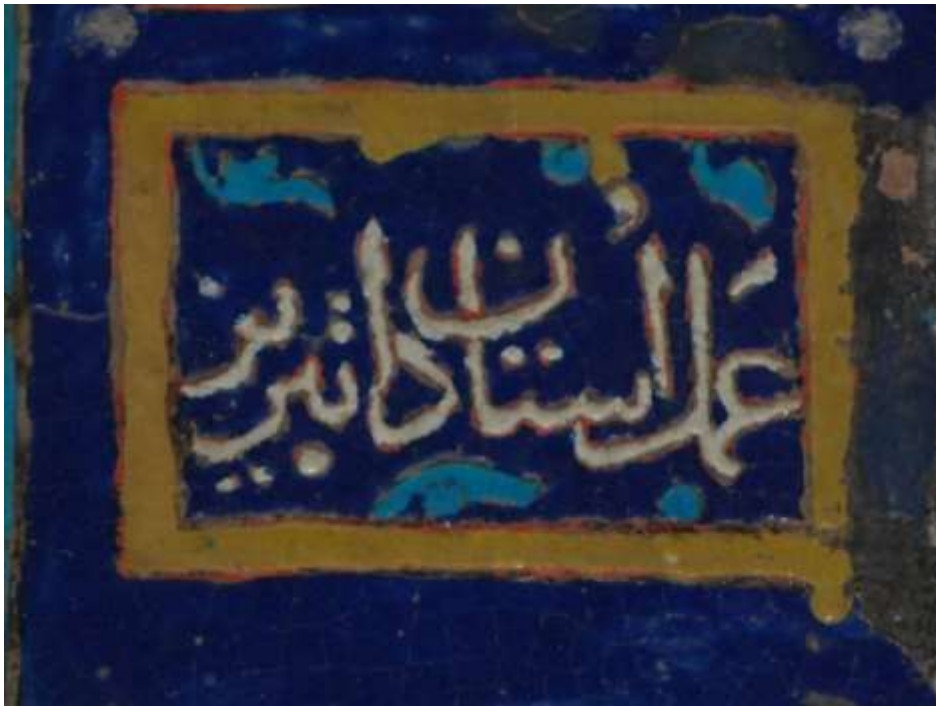 عمل استادان تبریز